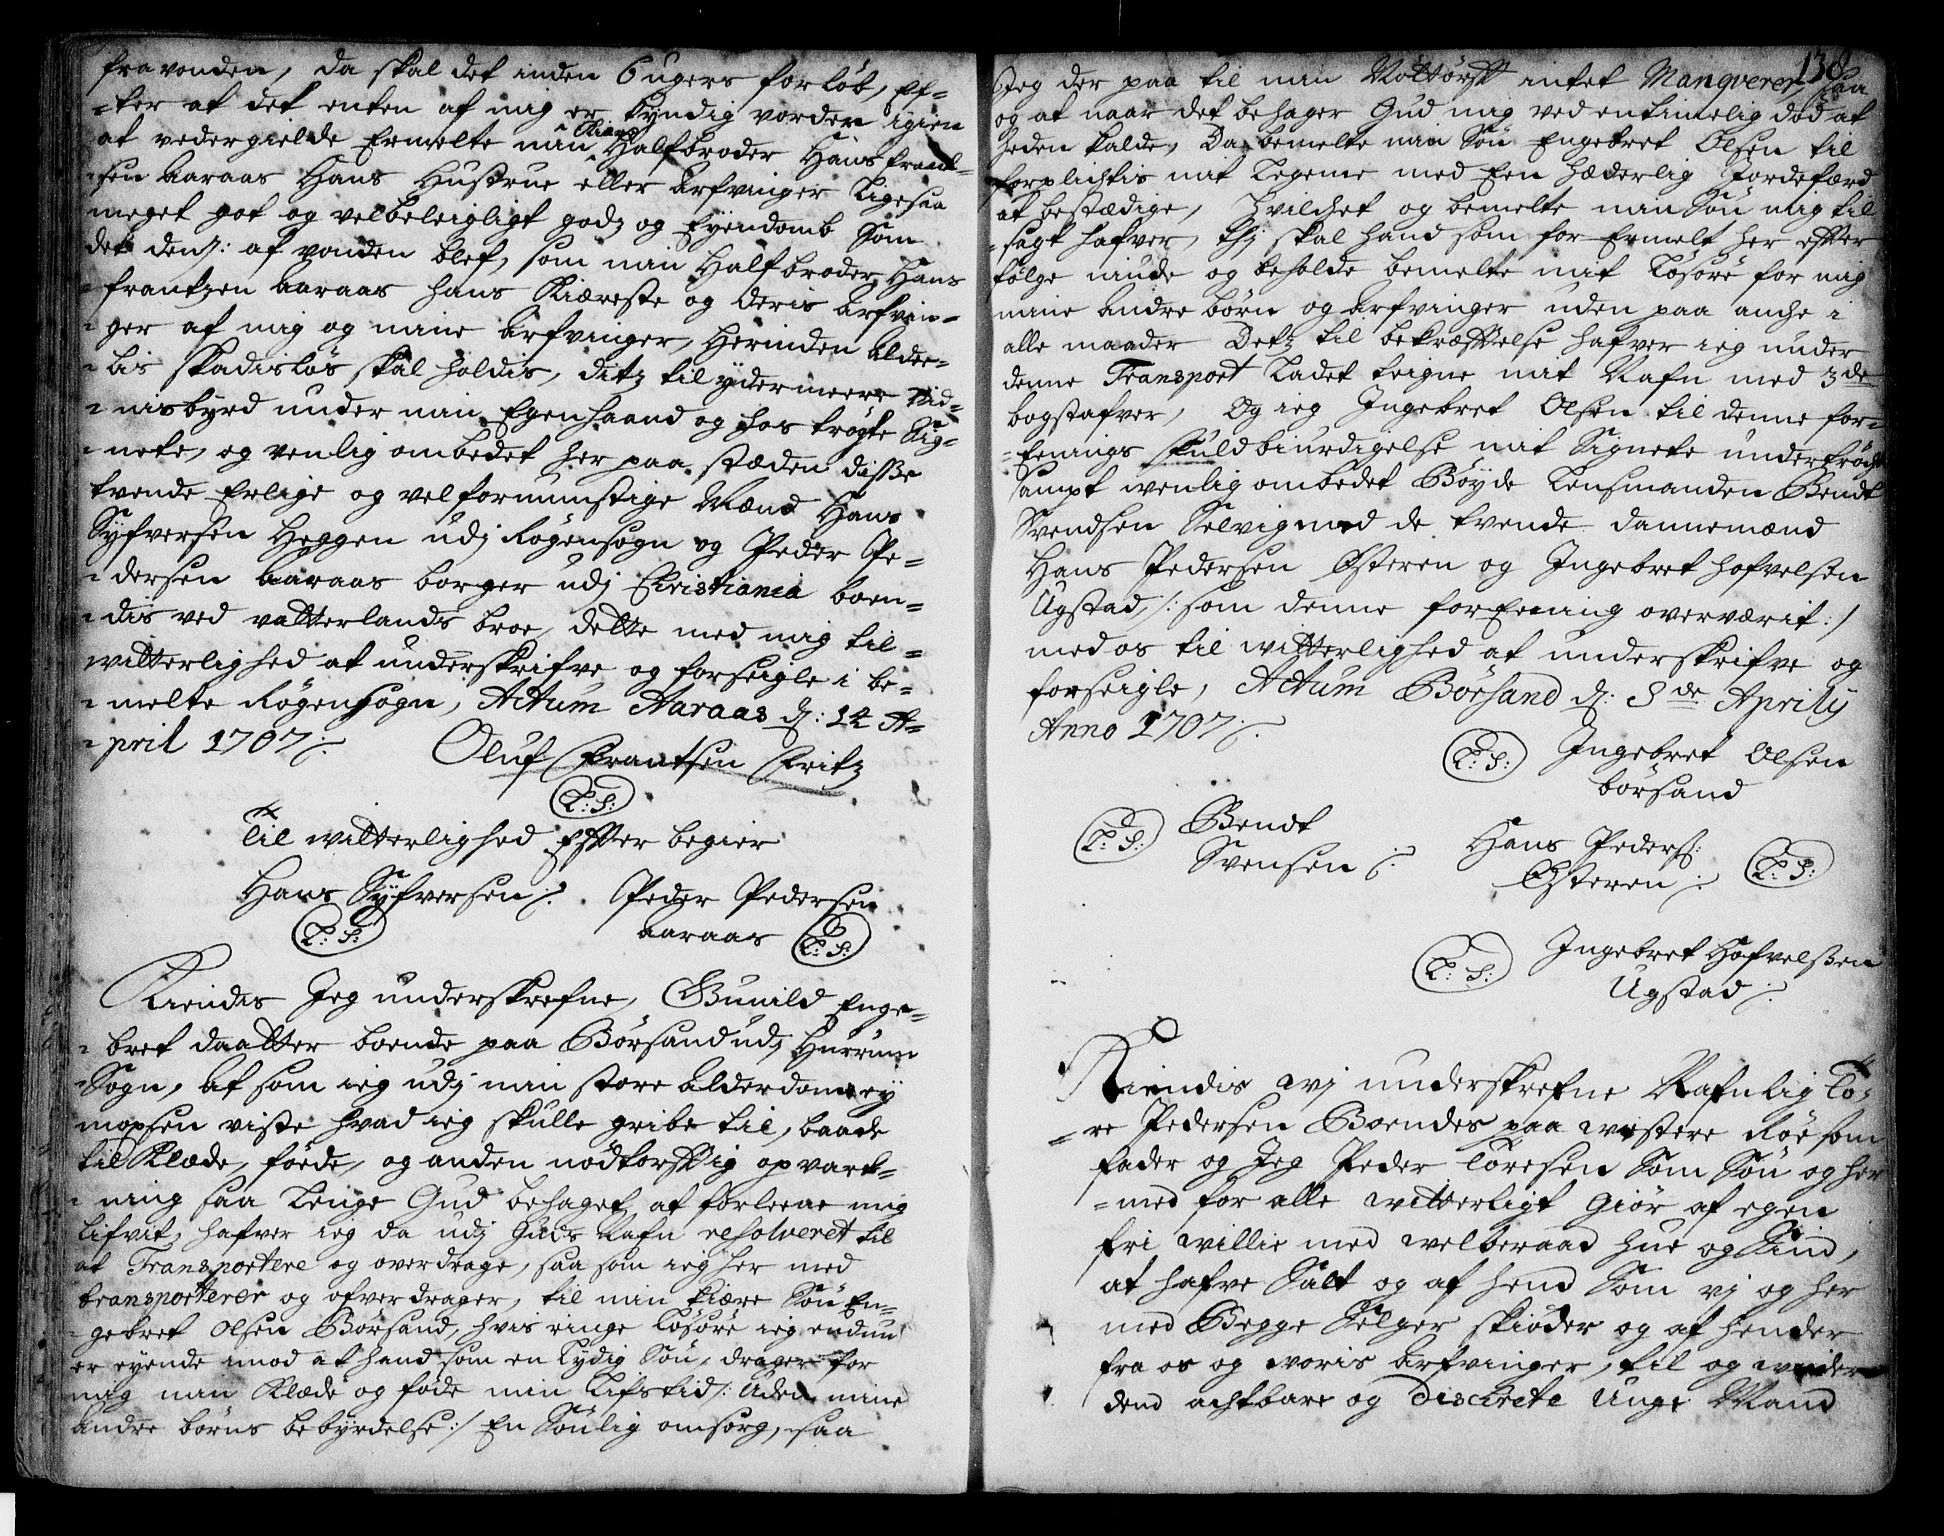 fravonden, da skal det inden 6 ugers forløb, ef-
-ter at det enten af mig er kyndig vorden igien
at vedergielde Ermelte min Kiære Halfbroder Hans frant-
-sen Aaraas Hans Hustrue eller Arfvinger Ligesaa
meget got og velbeleigligt godz og Eyendomb Som
det dend: af vonden blef, som min Halfbroder Hans
frantzen Aaraas hans Kiæreste og deris Arfvin-
-ger af mig og mine Arfvinger, Herinden Alder-
-lis skadisløs skal holdis, ditz til ydermeere vid-
-nisbyrd under min Egen haand og hos trøgte Sig-
-nete, og venlig ombedet her paa stæden disse
tvende Erlige og velfornumstige Mænd Hans
Syfversen Heggen udj Røgensogn og Peder Pe-
-dersen Aaraas borger udj Christiania boen-
-dis ved vatterlands broe, dette med mig til-
witterlighed at underskrifve og forseigle i be-
-melte Røgensogn, Actum Aaraas d: 14 A-
-pril 1707 ./.
Oluf Frantsen Fritz
L: S:
Til witterlighed Effter begier
Hans Syfversen ./. Peder Pedersen
Aaraas
L: S: L: S:
Kiendes Jeg underskrefne, Gunild Enge-
-bret daatter boende paa Børsand udj Hurrum
Sogn, At som ieg udj min store Alderdom ey
mopsen viste hvad ieg skulle gribe til, baade
til Klæde, føede, og anden nødtorfftig opvart-
-ning saa Lenge Gud behaget at forleene mig
Lifvit, hafver ieg da udj Guds Nafn resolveret til
at Transportere og overdrage, saa som ieg her med
transporterer og ofverdrager, til min kiære Søn En-
-gebret Olsen Børsand, hvis ringe Løsøre ieg endnu
er eyende imod at hand som en Lydig Søn, drager for
mig min Klæde og føde min Lifstid /: Uden mine
Andre børns bebyrdelse :/ En Sønlig omsorg, saa
138
Jeg der paa til min Nøttørfft intet Manqverer, saa
og at naar det behager Gud mig ved en timelig død at
heden kalde, Da bemelte min Søn Engebret Olsen til
forplichtis mit Legeme med Een hæderlig Jordefærd
at bestædige, Hvilchet og bemelte min Søn mig til
-sagt hafver, thj skal hand som for Ermelt her effter
følge niude og beholde bemelte mit Løsøre for mig
mine Andre børn og Arfvinger uden paa anche i
alle maader Detz til bekræfftelse hafver ieg under
denne Transport Ladet teigne mit Nafn med 3de
bogstafver, Og ieg Ingebret Olsen til denne for-
-Eenings fuldbiurdigelse mit Signete undertrøcht
sampt wenlig ombedet Bøyde Lensmanden Bendt
Svendsen Selvig med de tvende dannemænd
Hans Pedersen Østeren og Ingebret Hofvelsen
Ugstad, /: som denne forEening overværit :/
med os til witterlighed at underskrifve og
forseigle, Actum Børsand d: 8de Aprily
Anno 1707 ./.
L: S: Ingebret Olsen
børsand
L: S: Bendt
Svensen ./. Hans Peders:
Østeren ./. L: S:
L: S: Ingebret Hofvelsen
Ugstad ./.
Kiendis wj underskrefne Nafnlig To-
-re Pedersen Boendes paa westere Røe som
fader og Jeg Peder Toresen Som Søn og her
-med for alle witterligt Giør af egen
fri willie med welberaad hue og Sind,
at hafve Sált og af hend Som vj og her
med Begge Selger skiøder og af hender
fra os og woris Arfvinger, til og under
dend achtbare og Discrete Unge Mand